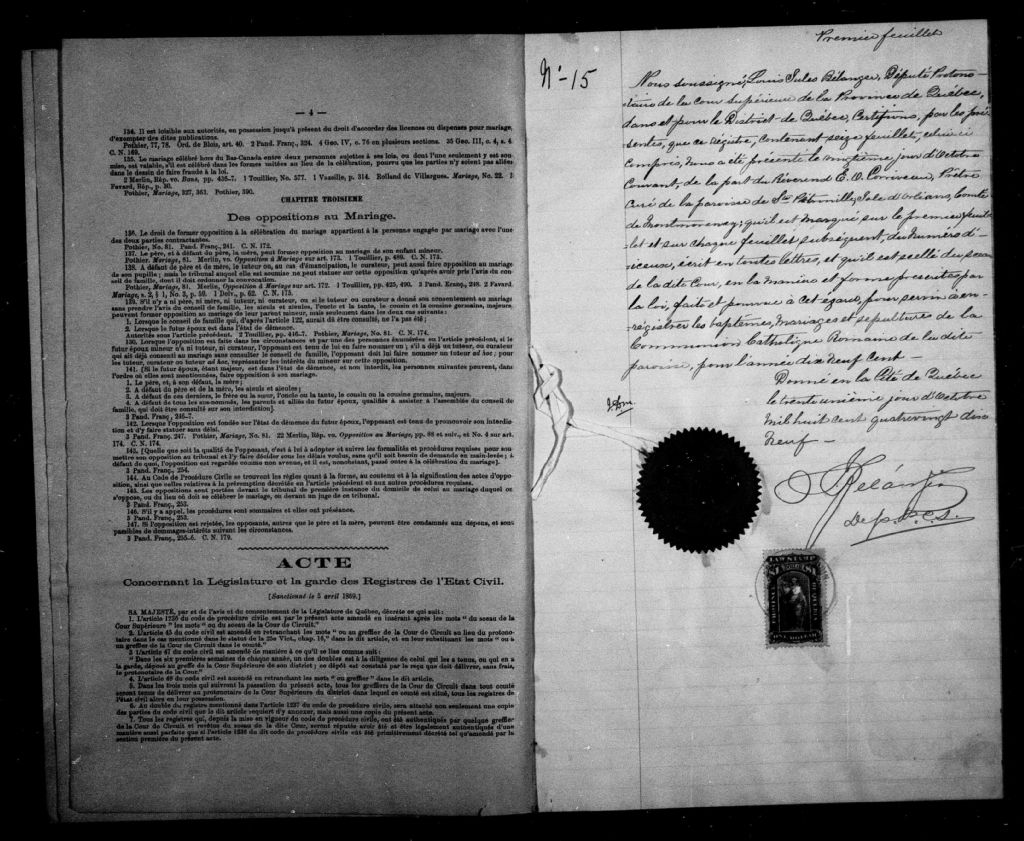 — 4 —
134. Il est loisible aux autorités, en possession jusqu'à présent du droit d'accorder des licences ou dispenses pour mariage,
d'exempter des dites publications.
Pothier, 77, 78. Ord. de Blois, art. 40. 2 Pand. Franç., 324. 4 Geo. IV, c. 76 en plusieurs sections. 35 Geo. III, c. 4, s. 4
C. N. 169.
135. Le mariage célébré hors du Bas-Canada entre deux personnes sujettes à ses lois, ou dont l'une seulement y est sou-
mise, est valable, s'il est célébré dans les formes usitées au lieu de la célébration, pourvu que les parties n'y soient pas allées
dans le dessein de faire fraude à la loi.
2 Merlin, Rép. vo. Bans, pp. 435-7. 1 Touillier, No. 577. 1 Vazeille, p. 314. Rolland de Villargues. Mariage, No. 22.
Favard, Rép., p. 30.
Pothier, Mariage, 327, 361. Pothier, 390.
CHAPITRE TROISIEME
Des oppositions au Mariage.
136. Le droit de former opposition à la célébration du mariage appartient à la personne engagée par mariage avec l'une
des deux parties contractantes.
Pothier, No. 81. Pand. Franç., 241. C. N. 172.
137. Le père, et à défaut du père, la mère, peut former opposition au mariage de son enfant mineur.
Pothier, Mariage, 81. Merlin, vo. Opposition à Mariage sur art. 173. 1 Touillier, p. 489. C. N. 173.
138. A défaut de père et de mère, le tuteur ou, au cas d'émancipation, le curateur, peut aussi faire opposition au mariage
de son pupille; mais le tribunal auquel elle est soumise ne peut statuer sur cette opposition qu'après avoir pris l'avis du con-
seil de famille, dont il doit ordonner la convocation.
Pothier, Mariage, 81. Merlin, Opposition à Mariage sur art. 172. 1 Touillier, pp. 425, 490. 3 Pand. Franç., 248. 2 Favard
Mariage, s. 2, § 1, No. 3, p. 59. 1 Delv., p. 62. C. N. 175.
139. S'il n'y a ni père, ni mère, ni tuteur, ni curateur, ou si le tuteur ou curateur a donné son consentement au mariage
sans prendre l'avis du conseil de famille, les aïeuls et aïeules, l'oncle et la tante, le cousin et la cousine germains, majeurs,
peuvent former opposition au mariage de leur parent mineur, mais seulement dans les deux cas suivants:
1. Lorsque le conseil de famille qui, d'après l'article 122, aurait dû être consulté, ne l'a pas été;
2. Lorsque le futur époux est dans l'état de démence.
Autorités sous l'article précédent. 2 Touillier, pp. 416-7. Pothier, Mariage, No. 81. C. N. 174.
130. Lorsque l'opposition est faite dans les circonstances et par une des personnes énumérées en l'article précédent, si le
futur époux mineur n'a ni tuteur, ni curateur, l'opposant est tenu de lui en faire nommer un; s'il a déjà un tuteur, ou curateur
qui ait déjà consenti au mariage sans consulter le conseil de famille, l'opposant doit lui faire nommer un tuteur ad hoc; pour
les tuteur, curateur ou tuteur ad hoc, représenter les intérêts du mineur sur cette opposition.
141. [Si le futur époux, étant majeur, est dans l'état de démence, et non interdit, les personnes suivantes peuvent, dans
l'ordre où elles sont mentionnées, faire opposition à son mariage.
1. Le père, et, à son défaut, la mère;
2. A défaut du père et de la mère, les aïeuls et aïeules;
3. A défaut de ces derniers, le frère ou la sœur, l'oncle ou la tante, le cousin ou la cousine germains, majeurs.
4. A défaut de tous les sus-nommés, les parents et alliés du futur époux, qualifiés à assister à l'assemblée du conseil de
famille, qui doit être consulté sur son interdiction]
3 Pand. Franç., 246-7.
142. Lorsque l'opposition est fondée sur l'état de démence du futur époux, l'opposant est tenu de promouvoir son interdic-
tion et d'y faire statuer sans délai.
3 Pand. Franç. 247. Pothier, Mariage, No. 81. 22 Merlin, Rép. vo. Opposition au Mariage, pp. 88 et suiv., et No. 4 sur art.
174. C. N. 174.
143. [Quelle que soit la qualité de l'opposant, c'est à lui à adopter et suivre les formalités et procédures requises pour sou-
mettre son opposition au tribunal et l'y faire décider sous les délais voulus, sans qu'il soit besoin de demande en main-levée; à
défaut de quoi, l'opposition est regardée comme non avenue, et il est, nonobstant, passé outre à la célébration du mariage].
3 Pand. Franç., 254.
144. Au Code de Procédure Civile se trouvent les règles quant à la forme, au contenu et à la signification des actes d'oppo-
sition, ainsi que celles relatives à la péremption décrétée en l'article précédent et aux autres procédures requises.
145. Les oppositions sont portées devant le tribunal de première instance du domicile de celui au mariage duquel on
s'oppose, ou du lieu où doit se célébrer le mariage, ou devant un juge de ce tribunal.
3 Pand. Franç., 253.
146. S'il y a appel, les procédures sont sommaires et elles ont préséance.
3 Pand. Franç., 253.
147. Si l'opposition est rejetée, les opposants, autres que le père et la mère, peuvent être condamnés aux dépens, et sont
passibles de dommages-intérêts suivant les circonstances.
3 Pand. Franç., 255-6. C. N. 179.
ACTE
Concernant la Législature et la garde des Registres de l'Etat Civil.
[Sanctionné le 5 avril 1869.]
SA MAJESTÉ, par et de l'avis et du consentement de la Législature de Québec, décrète ce qui suit:
1. L'article 1236 du code de procédure civile est par le présent acte amendé en insérant après les mots "du sceau de la
Cour Supérieure" les mots "ou du sceau de la Cour de Circuit."
2. L'article 45 du code civil est amendé en retranchant les mots "ou au greffier de la Cour de Circuit au lieu du protono-
taire dans le cas mentionné dans le statut de la 25e Vict., chap. 16," dans le dit article, et en leur substituant les mots "ou à
un greffier de la Cour de Circuit dans le comté."
3 L'article 47 du code civil est amendé de manière à ce qu'il se lise comme suit:
"Dans les six premières semaines de chaque année, un des doubles est à la diligence de celui qui les a tenus, ou qui en a
la garde, déposé au greffe de la Cour Supérieure de son district; ce dépôt est constaté par le reçu que doit délivrer, sans frais,
le protonotaire de la Cour."
4. L'article 48 du code civil est amendé en retranchant les mots "ou greffier" dans le dit article.
5. Dans les trois mois qui suivront la passation du présent acte, tous les greffiers de la Cour de Circuit dans tout comté
seront tenus de délivrer au protonotaire de la Cour Supérieure du district dans lequel ce comté est situé, tous les registres de
l'état civil alors en leur possession.
6. Au double du registre mentionné dans l'article 1237 du code de procédure civile, sera attaché non seulement une copie
des parties du code civil que le dit article requiert d'y annexer, mais aussi une copie du présent acte.
7. Tous les registres qui, depuis la mise en vigueur du code de procédure civile, ont été authentiqués par quelque greffier
de la Cour de Circuit et revêtus du sceau de la dite Cour, seront réputés avoir été et être légalement authentiqués d'une
manière aussi parfaite que si l'article 1236 du dit code de procédure civile eût été primitivement décrété tel qu'amendé par la
section première du présent acte.
Premier feuillet
No-15
Nous soussigné, Louis Jules Bélanger, Député Protono-
taire de la Cour Supérieure de la Province de Québec,
dans et pour le District de Québec, Certifions, par les pré-
sentes, que ce régistre, contenant seize feuillets, celui-ci
compris, nous a été présenté le cinquième jour d'Octobre
courant, de la part du Révérend E. O. Corriveau, Prêtre
Curé de la paroisse de Ste Pétronille, Isle d'Orléans, Comté
de Montmorency; qu'il est marqué sur le premier feuil-
let et sur chaque feuillet subséquent, du numéro d'i-
ceux, écrit en toutes lettres, et qu'il est scellé du sceau
de la dite Cour, en la manière et forme prescrites par
la loi, faite et pourvue à cet égard, pour servir à en-
registrer les baptêmes, mariages et sépultures de la
Communion Catholique Romaine de la dite
paroisse, pour l'année dix neuf cent —
Donné en la Cité de Québec
le trente unième jour d'Octobre
mil huit cent quatre vingt dix
neuf —
Bélanger
Dep. P.C.S.
LAW STAMP
PROVINCE OF QUEBEC
ONE DOLLAR